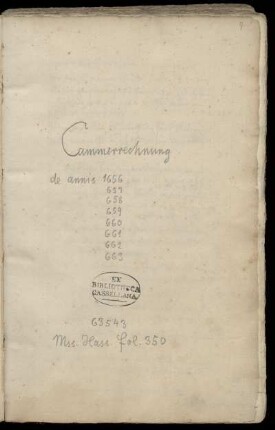 Cammerrechnung
de annis 1656
657
658
659
660
661
662
663
EX
BIBLIOTHECA
CASSELLANA
63543
Mss. Hass. fol. 350